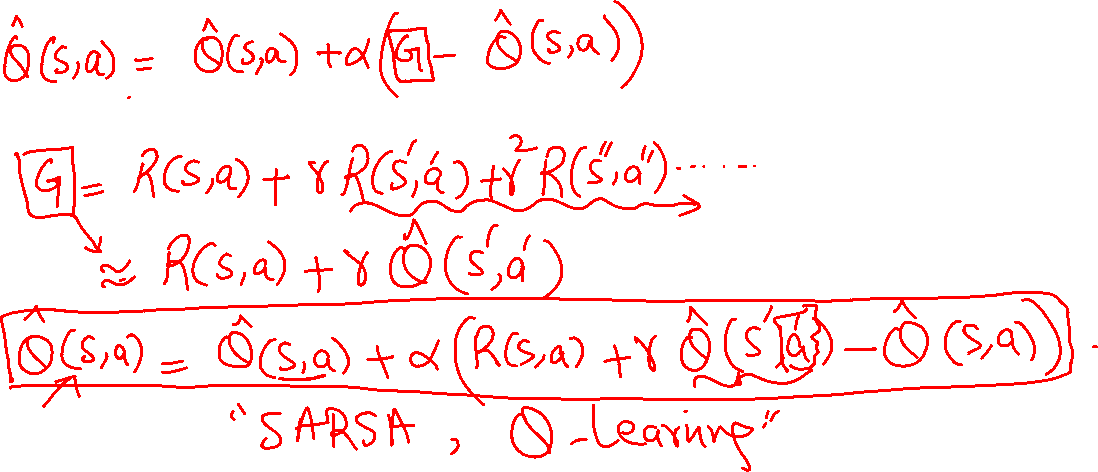 Q̂(s,a) = Q̂(s,a) + α(G - Q̂(s,a))
G = R(s,a) + γR(s',a') + γ²R(s'',a'') ......
≈ R(s,a) + γQ̂(s',a')
Q̂(s,a) = Q̂(s,a) + α(R(s,a) + γQ̂(s'[a'}) - Q̂(s,a)).
"SARSA, Q-Learning"